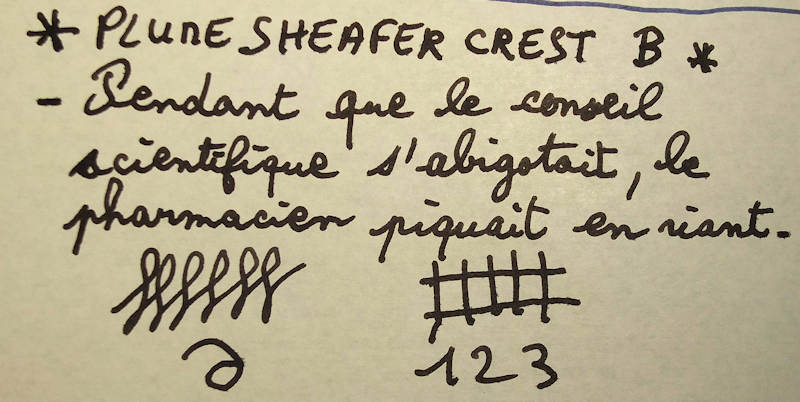 * PLUME SHEAFER CREST B *
- Pendant que le conseil
scientifique s'abigotait, le
pharmacien piquait en riant.
1 2 3